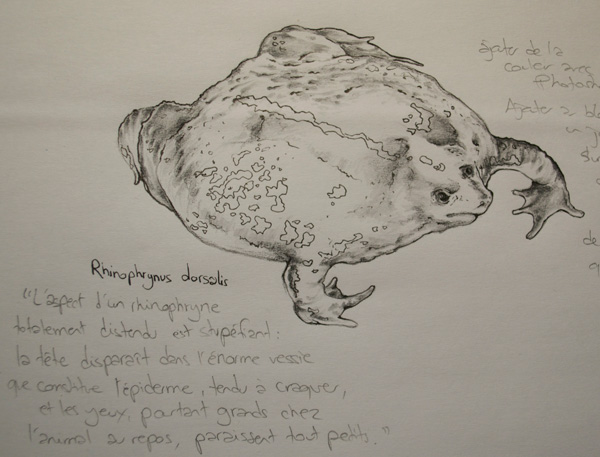 ajouter de la
couleur avec
Ajouter
un
Rhinophrynus dorsalis
"L'aspect d'un rhinophryne
totalement distendu est stupéfiant :
la tête disparaît dans l'énorme vessie
que constitue l'épiderme, tendu à craquer,
et les yeux, pourtant grands chez
l'animal au repos, paraissent tout petits."